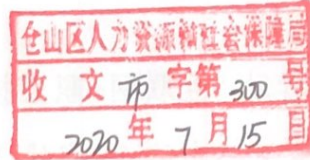 仓山区人力资源和社会保障局
收文市字第300号
2020年7月15日